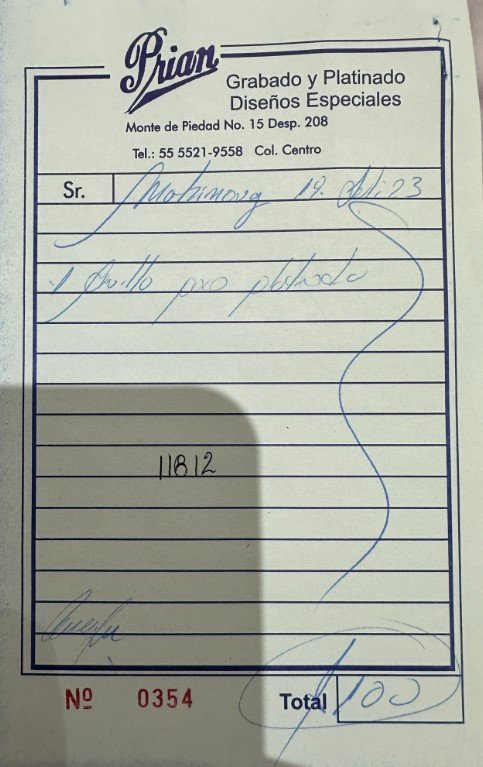 Prian
Grabado y Platinado
Diseños Especiales
Monte de Piedad No. 15 Desp. 208
Tel.: 55 5521-9558 Col. Centro
Sr. 19. 23
1
11812
Nº 0354 Total $100